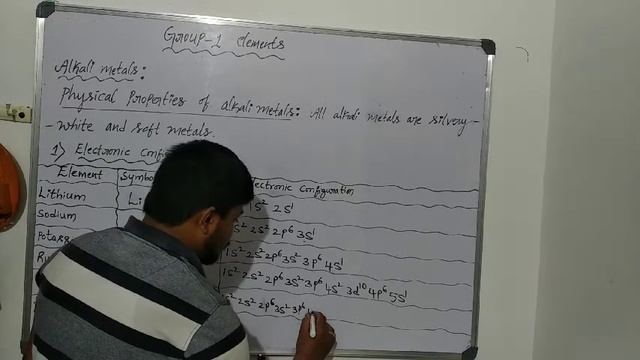 Group-1 elements
Alkali metals:
Physical Properties of alkali metals: All alkali metals are silvery-
-white and soft metals.
1) Electronic
Element Electronic Configuration
Lithium Li 1s² 2s¹
Sodium 1s² 2s² 2p⁶ 3s¹
1s² 2s² 2p⁶ 3s² 3p⁶ 4s¹
1s² 2s² 2p⁶ 3s² 3p⁶ 4s² 3d¹⁰ 4p⁶ 5s¹
2s² 2p⁶ 3s² 3p⁶